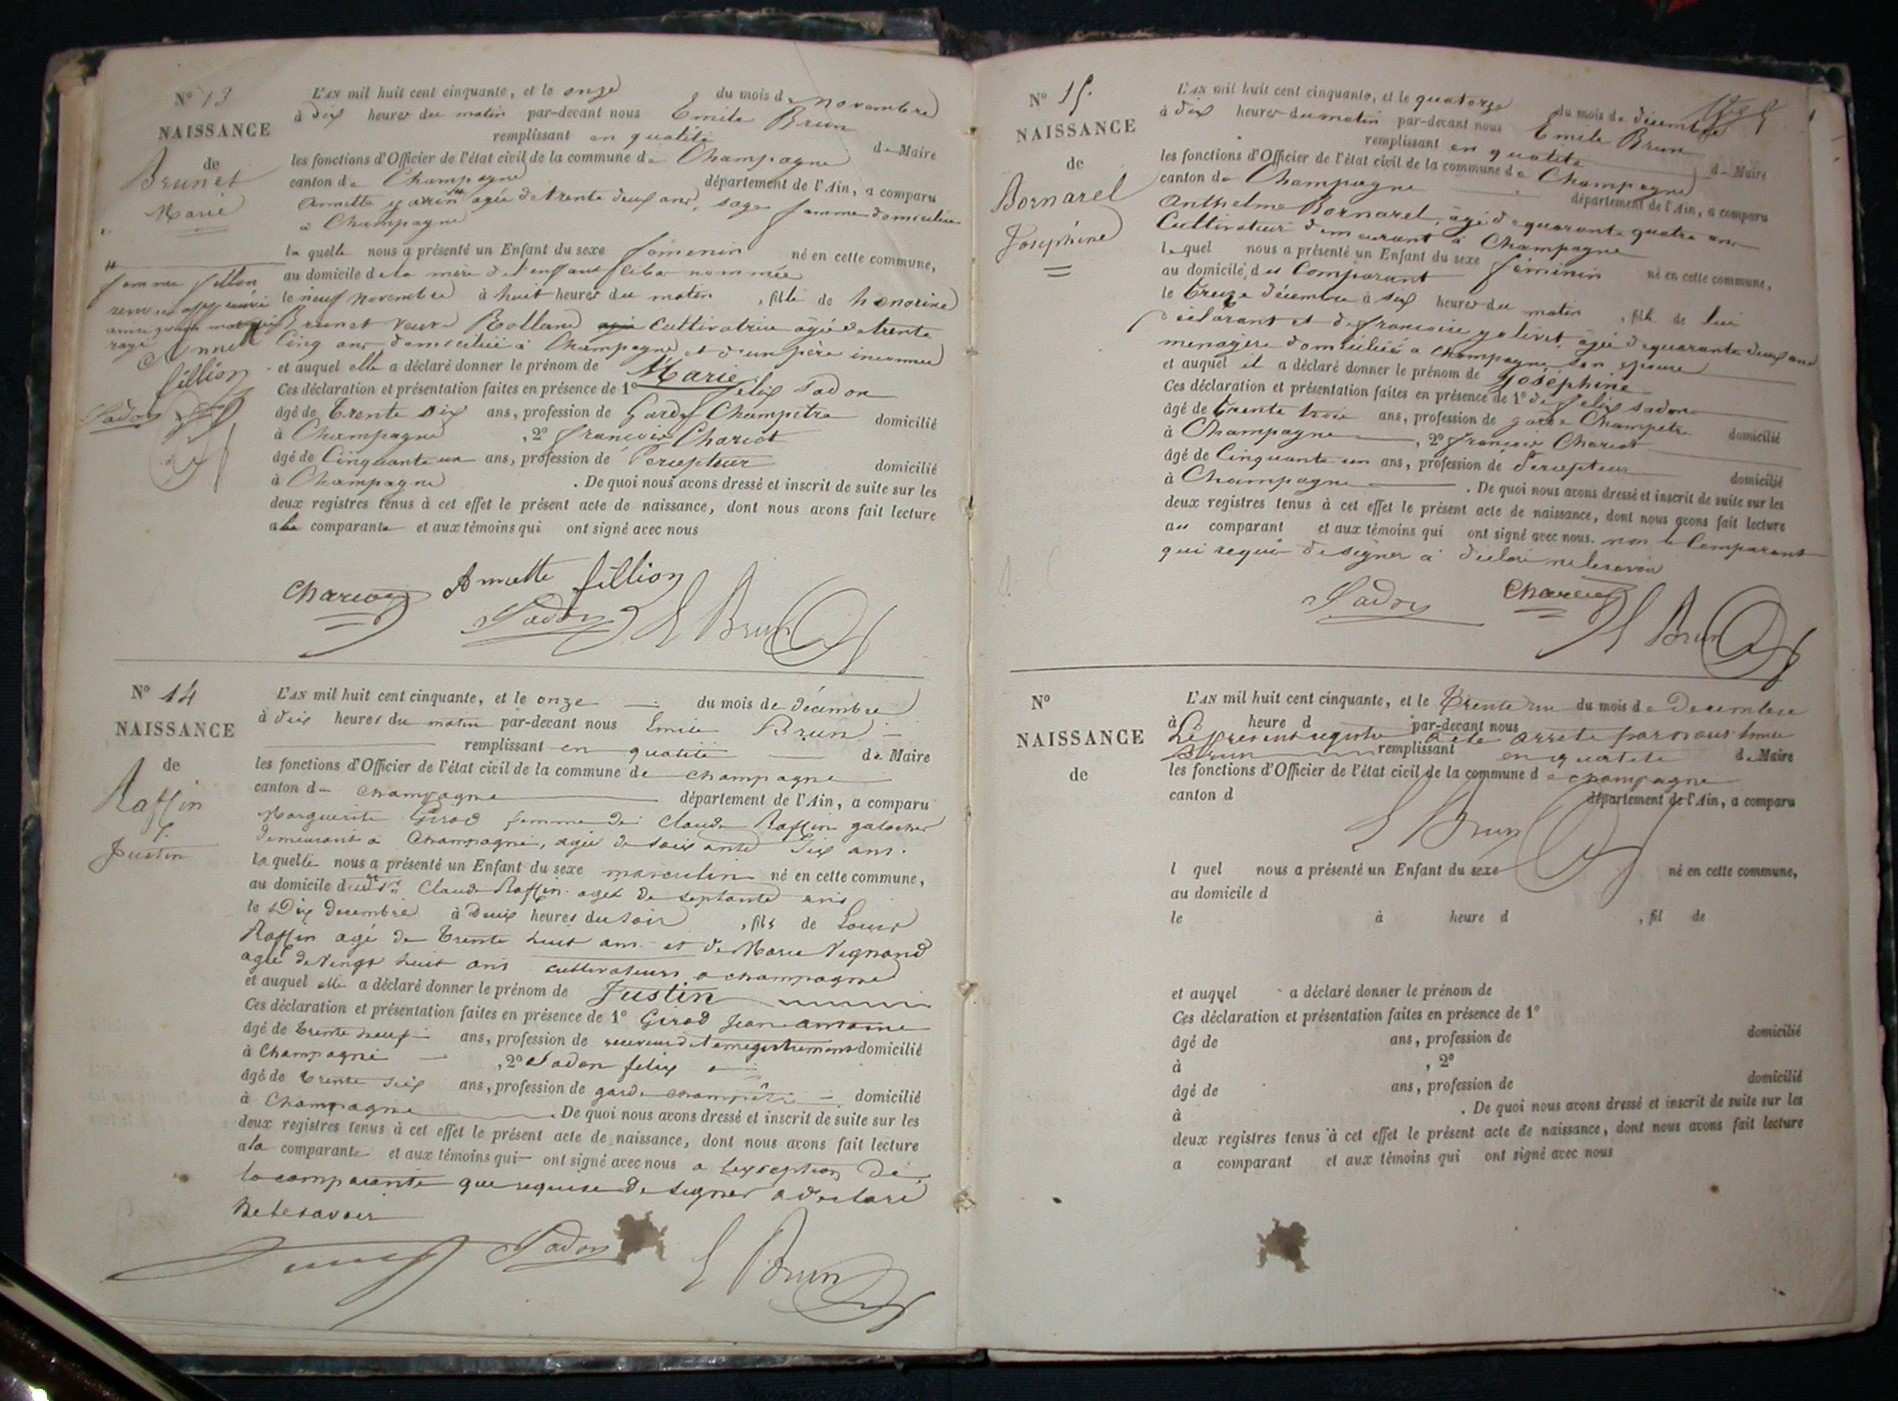 N° 13
NAISSANCE
de
Brunet
Marie
L'AN mil huit cent cinquante, et le onze du mois de novembre
à dix heures du matin par-devant nous Emile Brun
remplissant en qualité de Maire
les fonctions d'Officier de l'état civil de la commune de Champagne
canton de Champagne département de l'Ain, a comparu
Annette agée de trente deux ans, sage femme domiciliée
à Champagne
la quelle nous a présenté un Enfant du sexe féminin né en cette commune,
au domicile de la mère de l'enfant nommée
le neuf novembre à huit heures du matin, fille de honorine
Brunet veuve Rolland cultivatrice agée de trente
cinq ans domiciliée à Champagne et d'un père inconnu
et auquel elle a déclaré donner le prénom de Marie
Ces déclaration et présentation faites en présence de 1° felix Sadon
âgé de trente six ans, profession de Garde Champêtre domicilié
à Champagne, 2° françois Chariot
âgé de Cinquante un ans, profession de Percepteur domicilié
à Champagne. De quoi nous avons dressé et inscrit de suite sur les
deux registres tenus à cet effet le présent acte de naissance, dont nous avons fait lecture
a la comparante et aux témoins qui ont signé avec nous
femme fillion
Annette
fillion
Sadon
Chariot Annette fillion
Sadon E Brun
N° 14
NAISSANCE
de
Raffin
Justin
L'AN mil huit cent cinquante, et le onze du mois de décembre
à dix heures du matin par-devant nous Emile Brun
remplissant en qualité de Maire
les fonctions d'Officier de l'état civil de la commune de champagne
canton de champagne département de l'Ain, a comparu
Marguerite Girod femme de Claude Raffin galocher
demeurant a Champagne, agée de soixante six ans.
la quelle nous a présenté un Enfant du sexe masculin né en cette commune,
au domicile du Claude Raffin agé de septante ans
le Dix decembre à Deux heures du soir, fils de Louis
Raffin agé de trente huit ans et de Marie Vignand
agée de vingt huit ans cultivateurs a champagne
et auquel elle a déclaré donner le prénom de Justin
Ces déclaration et présentation faites en présence de 1° Girod Jean antoine
âgé de trente neuf ans, profession de receveur de l'enregistrement domicilié
à Champagne, 2° Sadon felix
âgé de trente six ans, profession de garde champêtre domicilié
à Champagne. De quoi nous avons dressé et inscrit de suite sur les
deux registres tenus à cet effet le présent acte de naissance, dont nous avons fait lecture
a la comparante et aux témoins qui ont signé avec nous a l'exception de
la comparante que requise de signer a declaré
ne le savoir
Sadon E Brun
N° 15.
NAISSANCE
de
Bornarel
Joséphine
L'AN mil huit cent cinquante, et le quatorze du mois de décembre
à dix heures du matin par-devant nous Emile Brun
remplissant en qualité de Maire
les fonctions d'Officier de l'état civil de la commune de Champagne
canton de Champagne département de l'Ain, a comparu
Anthelme Bornarel, agé de quarante quatre ans
Cultivateur demeurant à Champagne
lequel nous a présenté un Enfant du sexe féminin né en cette commune,
au domicile du Comparant
le treize décembre à six heures du matin, fille de lui
déclarant et de françoise agée de quarante deux ans
menagère domiciliée à Champagne son épouse
et auquel il a déclaré donner le prénom de Joséphine
Ces déclaration et présentation faites en présence de 1° de felix Sadon
âgé de trente trois ans, profession de garde Champêtre domicilié
à Champagne, 2° françois Chariot
âgé de Cinquante un ans, profession de Percepteur domicilié
à Champagne. De quoi nous avons dressé et inscrit de suite sur les
deux registres tenus à cet effet le présent acte de naissance, dont nous avons fait lecture
au comparant et aux témoins qui ont signé avec nous. non le Comparant
qui requis de signer a déclaré ne le savoir
Sadon Chariot
E Brun
N°
NAISSANCE
de
L'AN mil huit cent cinquante, et le trente un du mois de Decembre
à heure d par-devant nous
Le present registre a été arreté par nous Emile
Brun remplissant en qualité de Maire
les fonctions d'Officier de l'état civil de la commune de champagne
canton d département de l'Ain, a comparu
E Brun
l quel nous a présenté un Enfant du sexe né en cette commune,
au domicile d
le à heure d, fil de
et auquel a déclaré donner le prénom de
Ces déclaration et présentation faites en présence de 1°
âgé de ans, profession de domicilié
à, 2°
âgé de ans, profession de domicilié
à. De quoi nous avons dressé et inscrit de suite sur les
deux registres tenus à cet effet le présent acte de naissance, dont nous avons fait lecture
a comparant et aux témoins qui ont signé avec nous